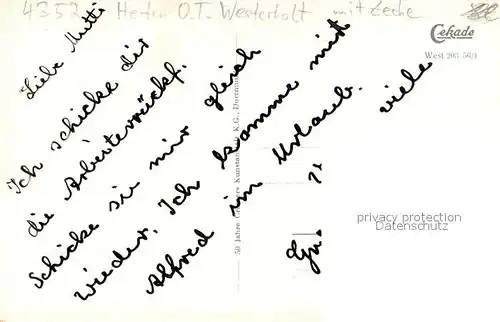 4352 Herten O.T. Westerholt mit Zeche
Cekade
West 203 56/1
Liebe Mutti
Ich schicke dir
die Arbeiterrückf.
Schicke sie mir gleich
wieder. Ich komme mit
Alfred im Urlaub. viele
Gr.
50 Jahre Kunstanstalt K.G., Dortmund
privacy protection
Datenschutz